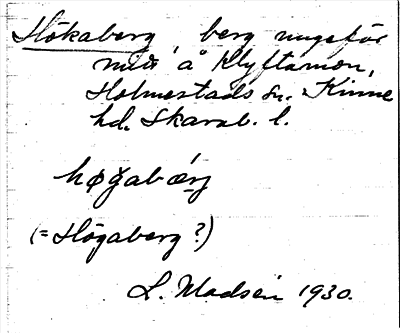 Hökaberg, berg ungefär
mitt å Klyftamon,
Holmestads sn. Kinne
hd. Skarab. l.
høǥabærg
(= Högaberg?)
L. Madsen 1930.